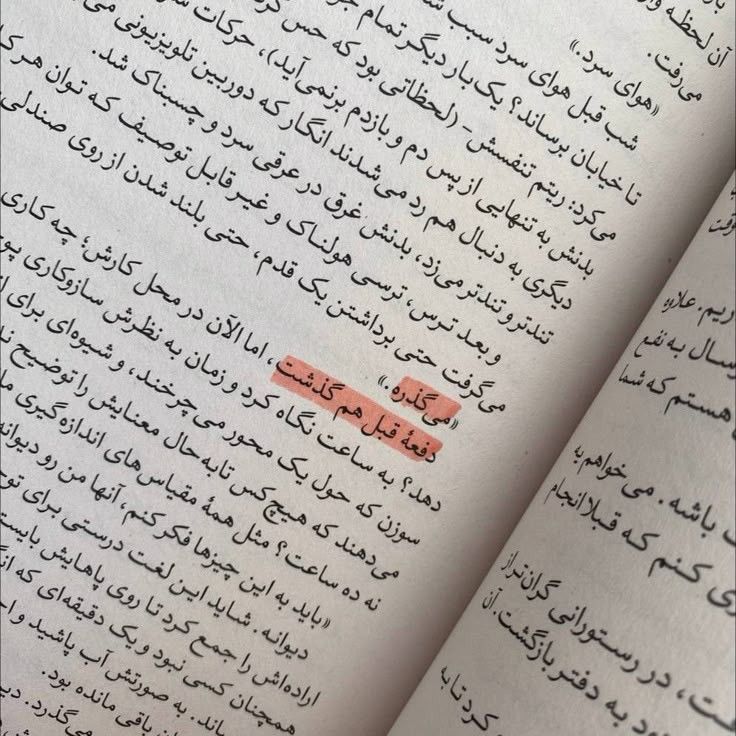 آن لحظه
می‌رفت.
«هوای سرد.»
شب قبل هوای سرد سبب
تا خیابان برساند؟ یک‌بار دیگر تمام
می‌کرد: ریتم تنفسش - (لحظاتی بود که حس
بدنش به تنهایی از پس دم و بازدم برنمی‌آید)، حرکات
دیگری به دنبال هم رد می‌شدند انگار که دوربین تلویزیونی
تندتر و تندتر می‌زد، بدنش غرق در عرقی سرد و چسبناک شد.
و بعد ترس، ترسی هولناک و غیرقابل توصیف که توان هر
می‌گرفت حتی برداشتن یک قدم، حتی بلند شدن از روی صندلی
«می‌گذره.»
دفعهٔ قبل هم گذشت، اما الآن در محل کارش؛ چه کاری
دهد؟ به ساعت نگاه کرد و زمان به نظرش سازوکاری
سوزن که حول یک محور می‌چرخند، و شیوه‌ای برای
می‌دهند که هیچ‌کس تابه‌حال معنایش را توضیح
نه ده ساعت؟ مثل همهٔ مقیاس‌های اندازه‌گیری
«باید به این چیزها فکر کنم، آنها من رو دیوانه
دیوانه. شاید این لغت درستی برای
اراده‌اش را جمع کرد تا روی پاهایش
همچنان کسی نبود و یک دقیقه‌ای که
به صورتش آب پاشید و
باقی مانده بود.
می‌گذرد.
ریم. علاوه
به نفع
هستم که شما
باشه. می‌خواهم به
کنم که قبلا انجام
در رستورانی گران‌تر از
به دفتر بازگشت. آن
کرد تا به